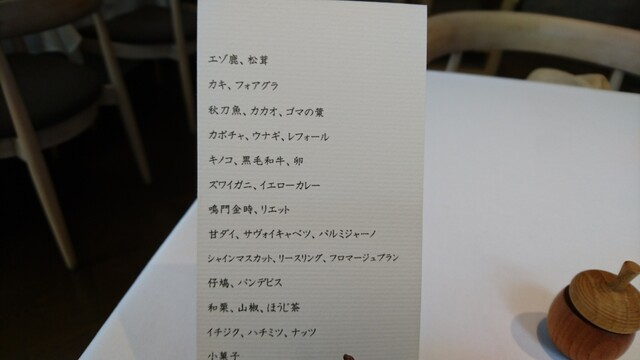 エゾ鹿、松茸
カキ、フォアグラ
秋刀魚、カカオ、ゴマの葉
カボチャ、ウナギ、レフォール
キノコ、黒毛和牛、卵
ズワイガニ、イエローカレー
鳴門金時、リエット
甘ダイ、サヴォイキャベツ、パルミジャーノ
シャインマスカット、リースリング、フロマージュブラン
仔鳩、パンデピス
和栗、山椒、ほうじ茶
イチジク、ハチミツ、ナッツ
小菓子